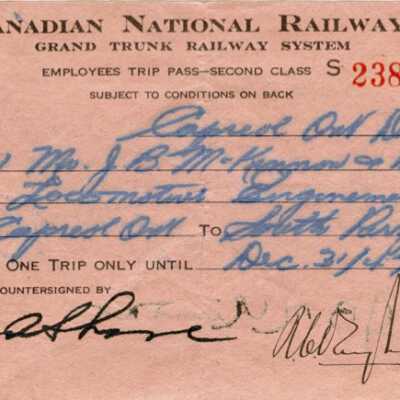 ANADIAN NATIONAL RAILWAY
GRAND TRUNK RAILWAY SYSTEM
EMPLOYEES TRIP PASS—SECOND CLASS S 238
SUBJECT TO CONDITIONS ON BACK
Capreol Ont D
Mr. J B McKinnon &
Locomotive Enginemen
Capreol Ont TO South
ONE TRIP ONLY UNTIL Dec. 31/
OUNTERSIGNED BY